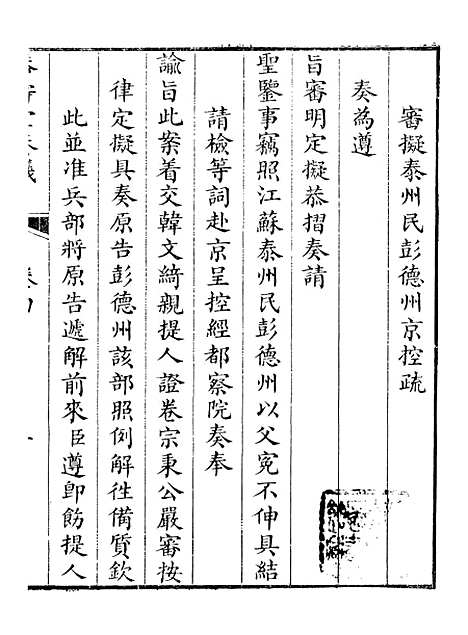 審擬泰州民彭德州京控疏
奏為遵
旨審明定擬恭摺奏請
聖鑒事竊照江蘇泰州民彭德州以父寃不伸具結
請檢等詞赴京呈控經都察院奏奉
諭旨此案着交韓文綺親提人證卷宗秉公嚴審按
律定擬具奏原告彭德州該部照例解徃備質欽
此並准兵部將原告遞解前來臣遵卽飭提人